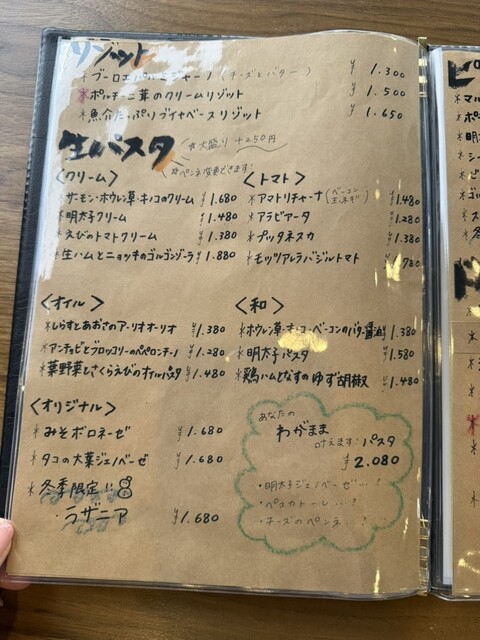 リゾット
*ブーロエパルミジャーノ(チーズとバター) ¥1.300
*ポルチーニ茸のクリームリゾット ¥1.500
*魚介たっぷりブイヤベースリゾット ¥1.650
生パスタ ☆大盛り+250円
☆ペンネ変更できます
<クリーム>
*サーモン・ホウレン草・キノコのクリーム ¥1.680
*明太子クリーム ¥1.480
*えびのトマトクリーム ¥1.380
*生ハムとニョッキのゴルゴンゾーラ ¥1.880
<トマト>
*アマトリチャーナ(ベーコン玉ネギ) ¥1.480
*アラビアータ ¥1.280
*プッタネスカ ¥1.380
*モッツアレラバジルトマト ¥1.780
<オイル>
*しらすとあおさのアーリオオーリオ ¥1.380
*アンチョビとブロッコリーのペペロンチーノ ¥1.280
*葉野菜とさくらえびのオイルパスタ ¥1.480
<和>
*ホウレン草・キノコ・ベーコンのバター醤油 ¥1.380
*明太子パスタ ¥1.580
*鶏ハムとなすのゆず胡椒 ¥1.480
<オリジナル>
*みそボロネーゼ ¥1.680
*タコの大葉ジェノベーゼ ¥1.680
*冬季限定!!
・ラザニア ¥1.680
あなたの
わがまま
叶えます!パスタ
¥2.080
・明太子ジェノベーゼ…?
・ペスカトーレ…?
・チーズのペンネ…?